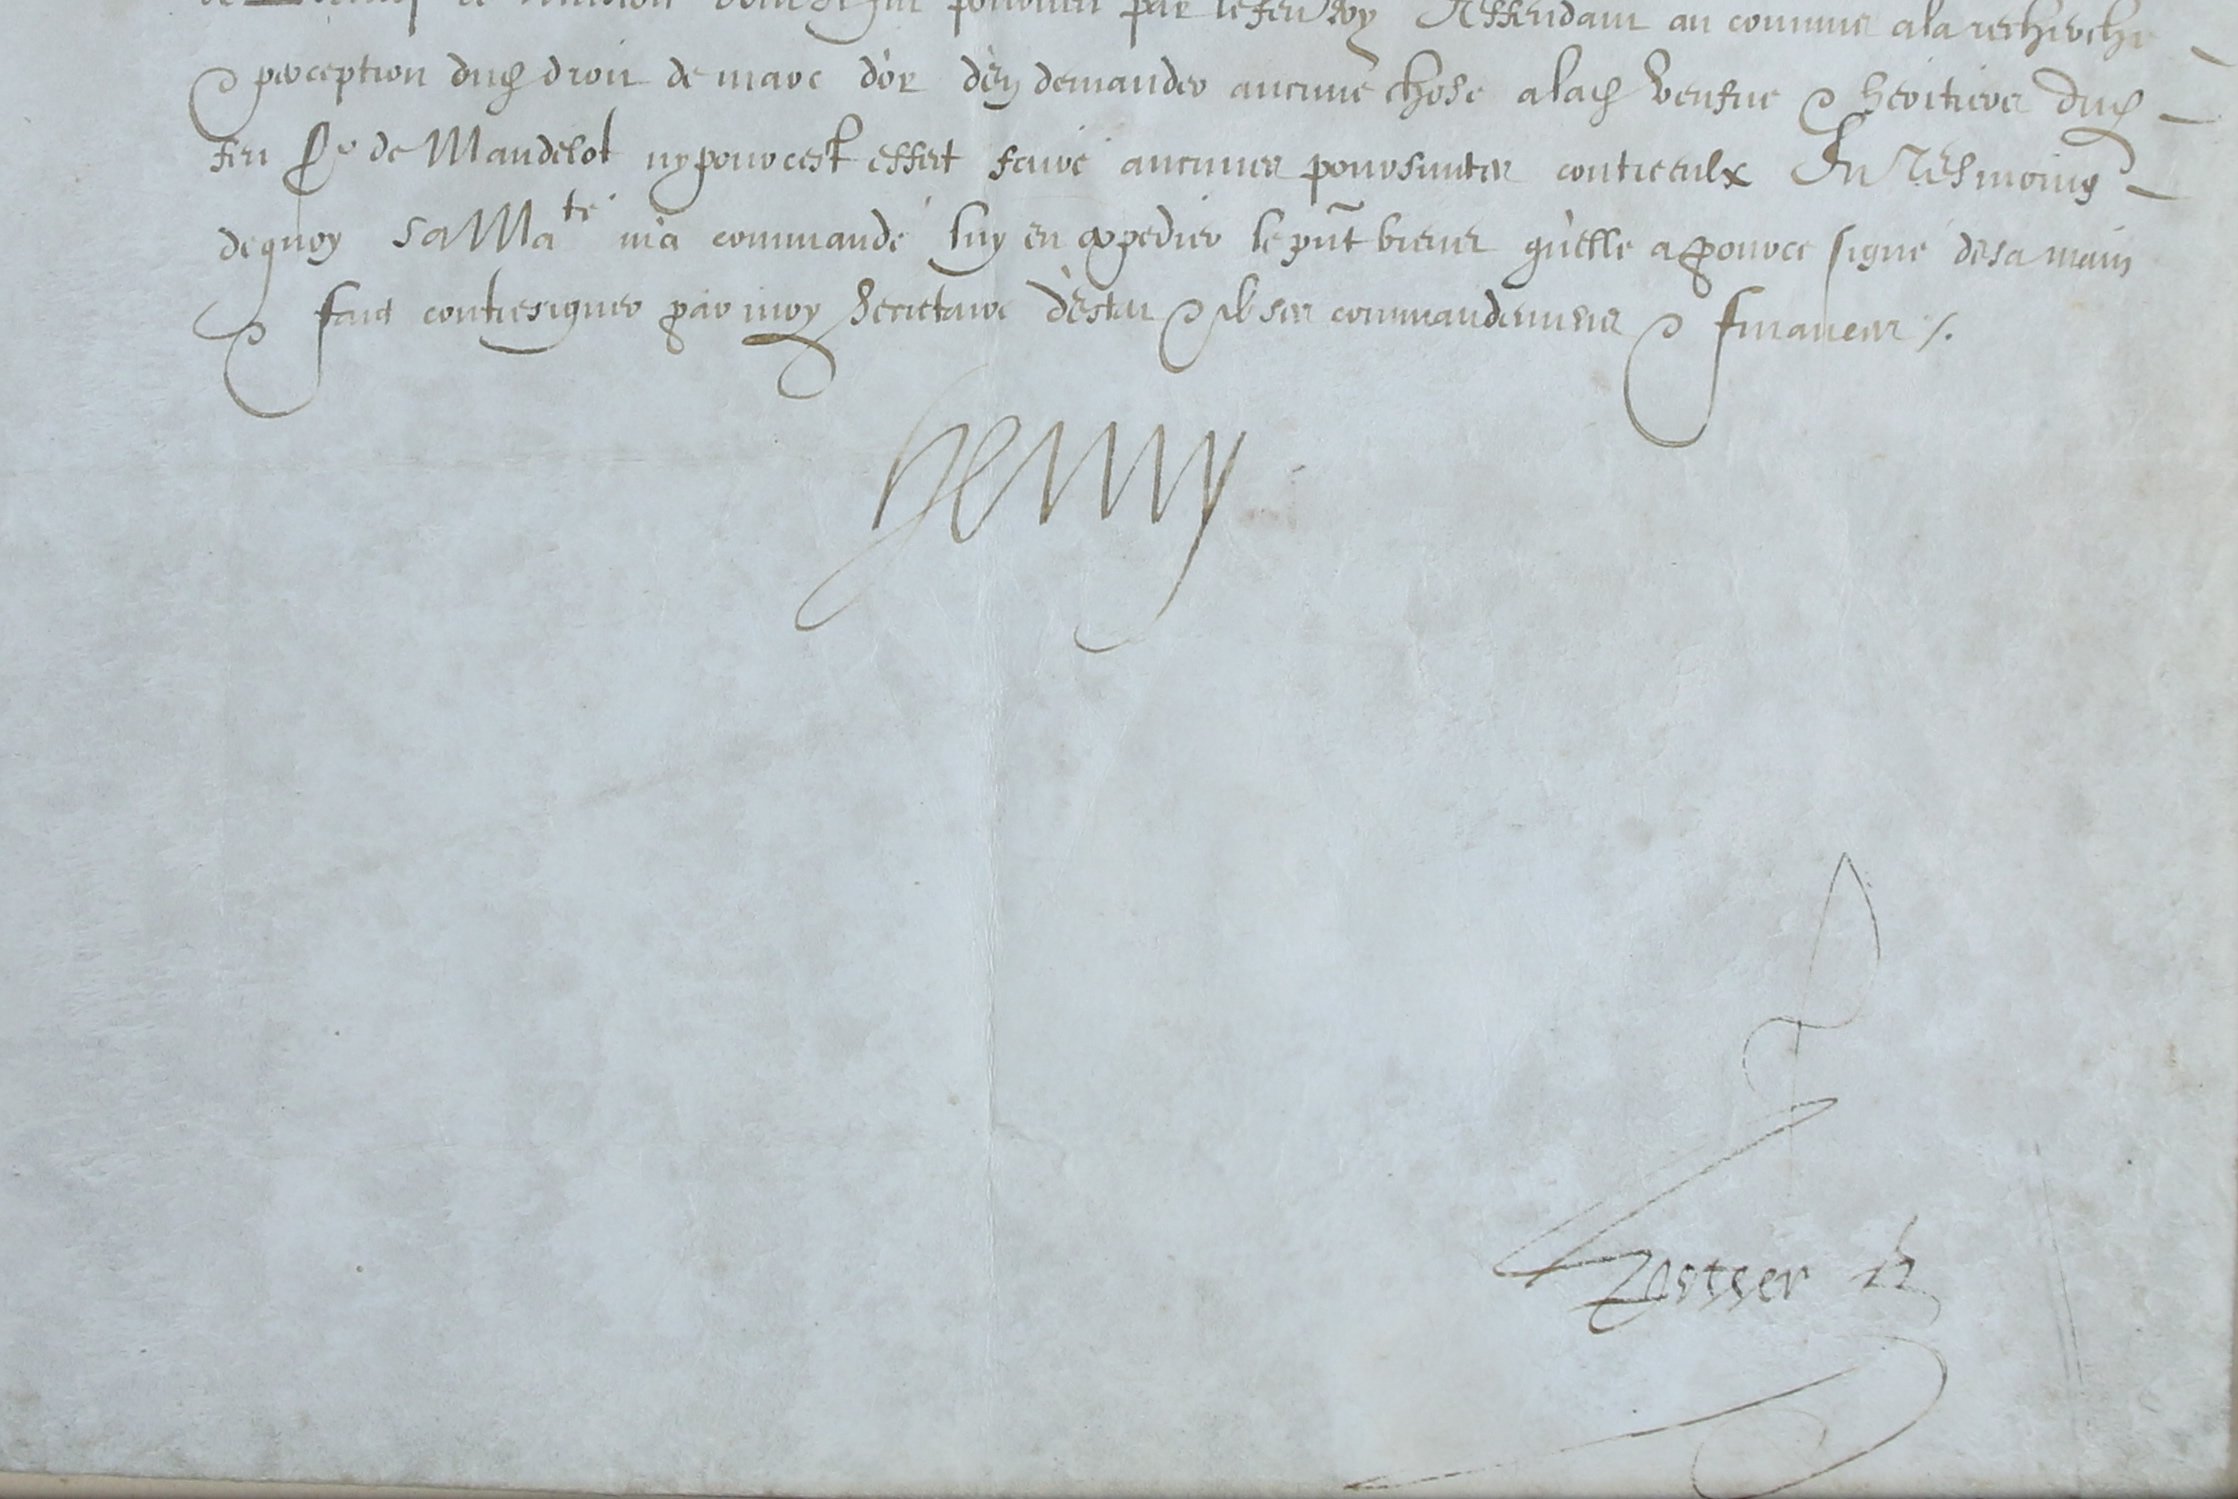 pourveu par le feu Roy Deffendant au commis a la recherche
& perception dud droit de marc d'or d'en demander aucune chose a lad veufve & heritiers dud
feu Sr de Mandelot ny pour cest effect faire aucunes poursuittes contre eulx En tesmoing
de quoy Sa Mate m'a commandé luy en expedier le pnt brevet qu'elle a pour ce signé de sa main
& faict contresigner par moy Secretaire d'estat & de ses commandemens & finances /.
Henry